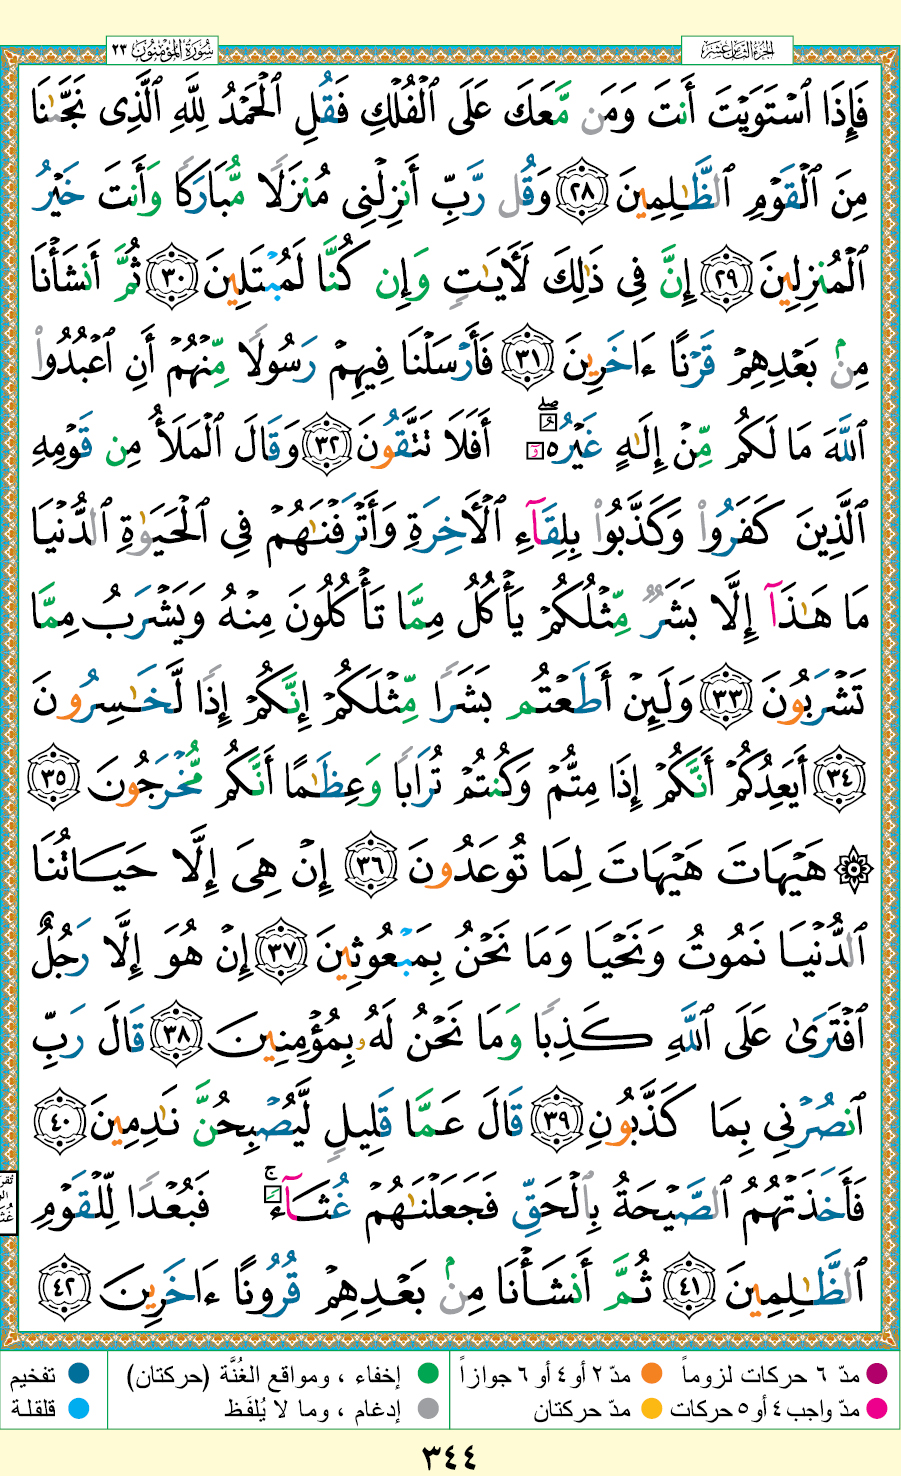 سُورَةُ المُؤْمِنُون ٢٣
الجزء الثامن عشر
فَإِذَا ٱسْتَوَيْتَ أَنتَ وَمَن مَّعَكَ عَلَى ٱلْفُلْكِ فَقُلِ ٱلْحَمْدُ لِلَّهِ ٱلَّذِى نَجَّىٰنَا
مِنَ ٱلْقَوْمِ ٱلظَّٰلِمِينَ ٢٨ وَقُل رَّبِّ أَنزِلْنِى مُنزَلًا مُّبَارَكًا وَأَنتَ خَيْرُ
ٱلْمُنزِلِينَ ٢٩ إِنَّ فِى ذَٰلِكَ لَءَايَٰتٍ وَإِن كُنَّا لَمُبْتَلِينَ ٣٠ ثُمَّ أَنشَأْنَا
مِنۢ بَعْدِهِمْ قَرْنًا ءَاخَرِينَ ٣١ فَأَرْسَلْنَا فِيهِمْ رَسُولًا مِّنْهُمْ أَنِ ٱعْبُدُوا۟
ٱللَّهَ مَا لَكُم مِّنْ إِلَٰهٍ غَيْرُهُۥٓ ۖ أَفَلَا تَتَّقُونَ ٣٢ وَقَالَ ٱلْمَلَأُ مِن قَوْمِهِ
ٱلَّذِينَ كَفَرُوا۟ وَكَذَّبُوا۟ بِلِقَآءِ ٱلْأَخِرَةِ وَأَتْرَفْنَٰهُمْ فِى ٱلْحَيَوٰةِ ٱلدُّنْيَا
مَا هَٰذَآ إِلَّا بَشَرٌ مِّثْلُكُمْ يَأْكُلُ مِمَّا تَأْكُلُونَ مِنْهُ وَيَشْرَبُ مِمَّا
تَشْرَبُونَ ٣٣ وَلَئِنْ أَطَعْتُم بَشَرًا مِّثْلَكُمْ إِنَّكُمْ إِذًا لَّخَٰسِرُونَ
٣٤ أَيَعِدُكُمْ أَنَّكُمْ إِذَا مِتُّمْ وَكُنتُمْ تُرَابًا وَعِظَٰمًا أَنَّكُم مُّخْرَجُونَ ٣٥
۞ هَيْهَاتَ هَيْهَاتَ لِمَا تُوعَدُونَ ٣٦ إِنْ هِىَ إِلَّا حَيَاتُنَا
ٱلدُّنْيَا نَمُوتُ وَنَحْيَا وَمَا نَحْنُ بِمَبْعُوثِينَ ٣٧ إِنْ هُوَ إِلَّا رَجُلٌ
ٱفْتَرَىٰ عَلَى ٱللَّهِ كَذِبًا وَمَا نَحْنُ لَهُۥ بِمُؤْمِنِينَ ٣٨ قَالَ رَبِّ
ٱنصُرْنِى بِمَا كَذَّبُونِ ٣٩ قَالَ عَمَّا قَلِيلٍ لَّيُصْبِحُنَّ نَٰدِمِينَ ٤٠
فَأَخَذَتْهُمُ ٱلصَّيْحَةُ بِٱلْحَقِّ فَجَعَلْنَٰهُمْ غُثَآءً ۚ فَبُعْدًا لِّلْقَوْمِ
ٱلظَّٰلِمِينَ ٤١ ثُمَّ أَنشَأْنَا مِنۢ بَعْدِهِمْ قُرُونًا ءَاخَرِينَ ٤٢
مدّ ٦ حركات لزوماً مدّ ٢ أو ٤ أو ٦ جوازاً إخفاء ، ومواقع الغُنَّة (حركتان) تفخيم
مدّ واجب ٤ أو ٥ حركات مدّ حركتان إدغام ، وما لا يُلفَظ قلقلة
٣٤٤